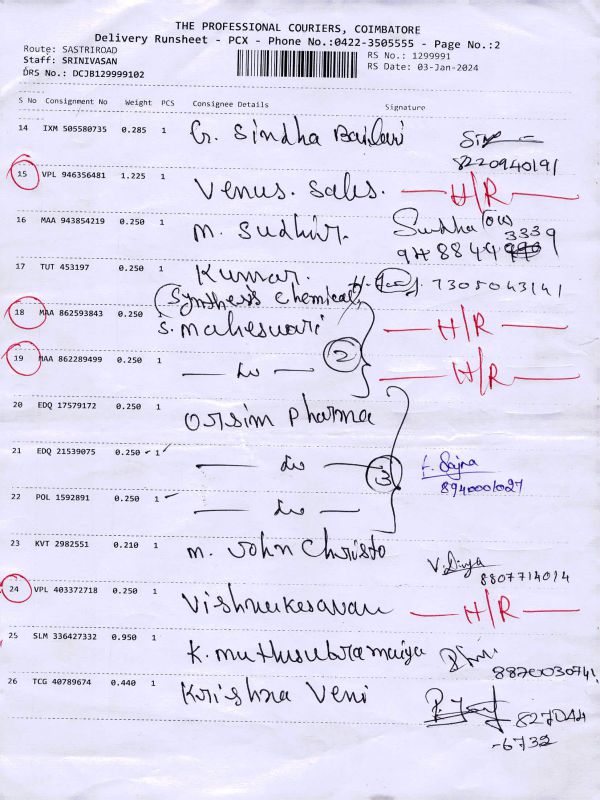 THE PROFESSIONAL COURIERS, COIMBATORE
Delivery Runsheet - PCX - Phone No.:0422-3505555 - Page No.:2
Route: SASTRIROAD
Staff: SRINIVASAN
DRS No.: DCJB129999102
RS No.: 1299991
RS Date: 03-Jan-2024
S No Consignment No Weight PCS Consignee Details Signature
14 IXM 505580735 0.285 1 G. Sindha
8220940191
15 VPL 946356481 1.225 1 Venus. Sales. H/R
16 MAA 943854219 0.250 1 M. Sudhir.
3339
17 TUT 453197 0.250 1 Kumar. 7305043141
(Synthesis Chemical)
18 MAA 862593843 0.250 1 S. Maheswari H/R
2
19 MAA 862289499 0.250 1 — do — H/R
20 EDQ 17579172 0.250 1 Orsim Pharma
21 EDQ 21539075 0.250 1 — do — 3 Sajna
8940001027
22 POL 1592891 0.250 1 — do —
23 KVT 2982551 0.210 1 M. John Christo V. Divya
8807714014
24 VPL 403372718 0.250 1 Vishnukesavan H/R
25 SLM 336427332 0.950 1 K. Muthusubramaiya
8870030741
26 TCG 40789674 0.440 1 Krishna Veni 827044
-6732